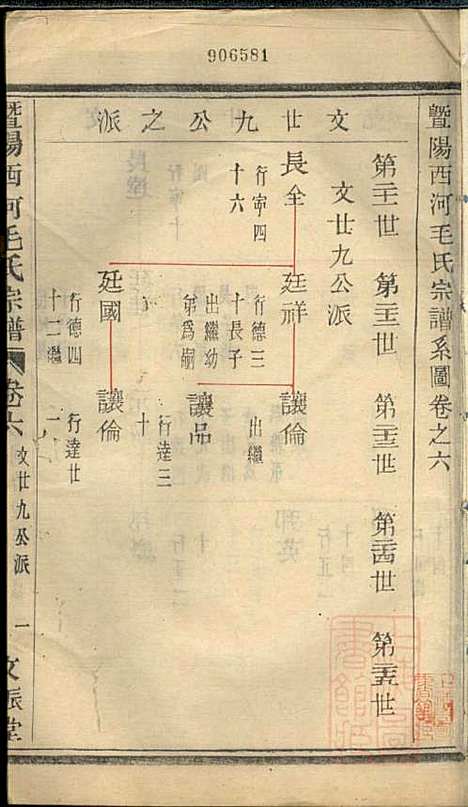 906581
文廿九公之派
暨陽西河毛氏宗譜系圖卷之六
第二十一世 第二十二世 第二十三世 第二十四世 第二十五世
文廿九公派
長全
行寧四
十六
廷祥
行德三
十長子
出繼幼
弟爲嗣
讓倫
出繼
讓品
行達三
十
廷國
行德四
十二繼
子
讓倫
行達廿
一
暨陽西河毛氏宗譜
卷六
文廿九公派
一
文振堂